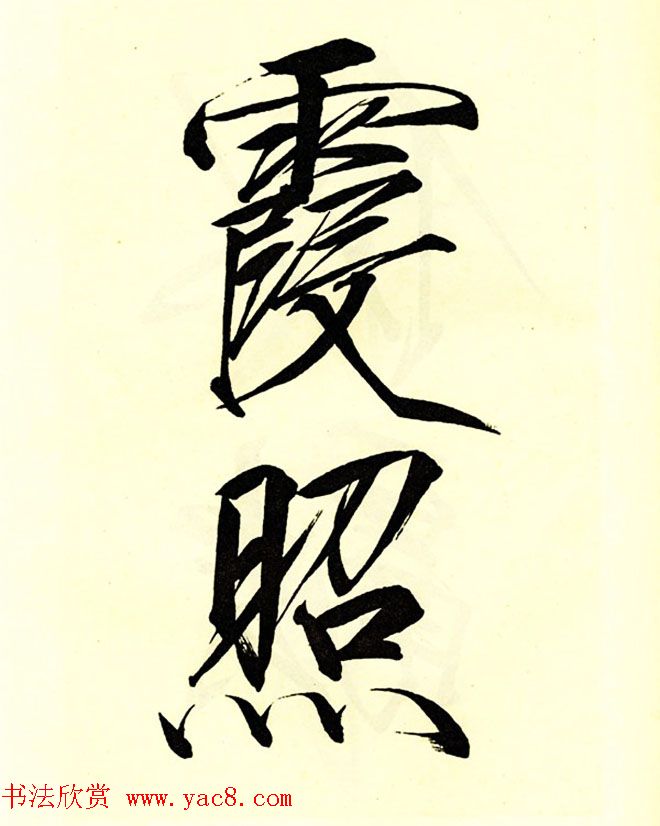 霞
照
书法欣赏 www.yac8.com